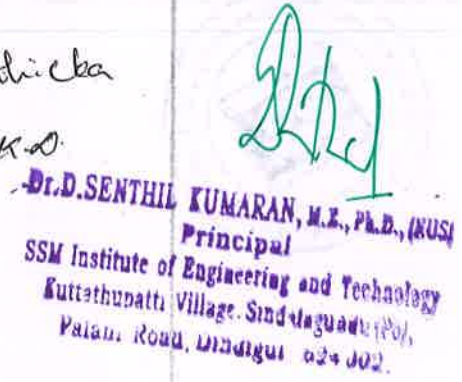 K.D.
Dr.D.SENTHIL KUMARAN, M.E., Ph.D., (NUS)
Principal
SSM Institute of Engineering and Technology
Kuttathupatti Village, Sindalagundu (Po),
Palani Road, Dindigul 624 002.